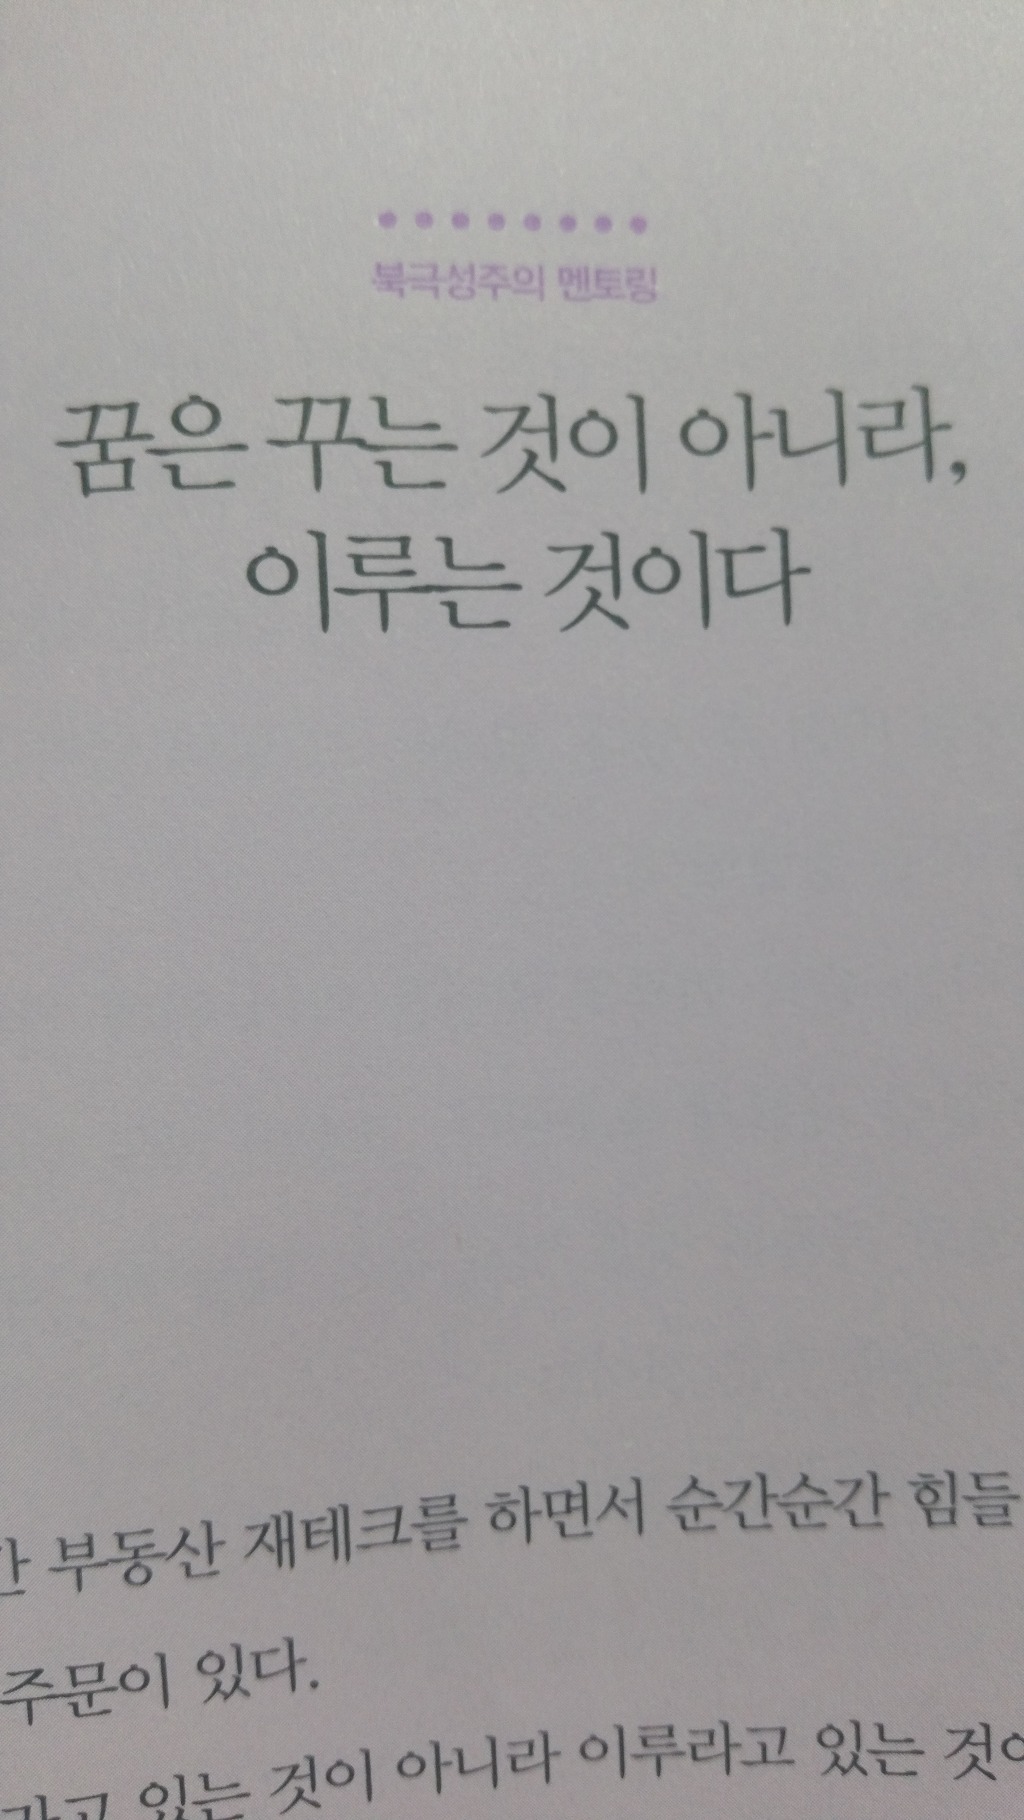 북극성주의 멘토링
꿈은 꾸는 것이 아니라,
이루는 것이다
부동산 재테크를 하면서 순간순간 힘들
주문이 있다.
라고 있는 것이 아니라 이루라고 있는 것이